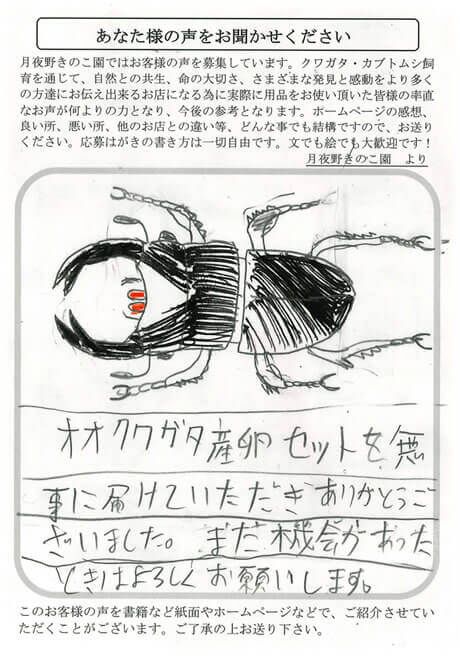 あなた様の声をお聞かせください
月夜野きのこ園ではお客様の声を募集しています。クワガタ・カブトムシ飼
育を通じて、自然との共生、命の大切さ、さまざまな発見と感動をより多く
の方達にお伝え出来るお店になる為に実際に用品をお使い頂いた皆様の率直
なお声が何よりの力となり、今後の参考となります。ホームページの感想、
良い所、悪い所、他のお店との違い等、どんな事でも結構ですので、お送り
ください。応募はがきの書き方は一切自由です。文でも絵でも大歓迎です！
月夜野きのこ園　より
オオクワガタ産卵セットを無
事に届けていただきありがとうご
ざいました。まだ機会があった
ときはよろしくお願いします。
このお客様の声を書籍など紙面やホームページなどで、ご紹介させてい
ただくことがございます。ご了承の上お送り下さい。